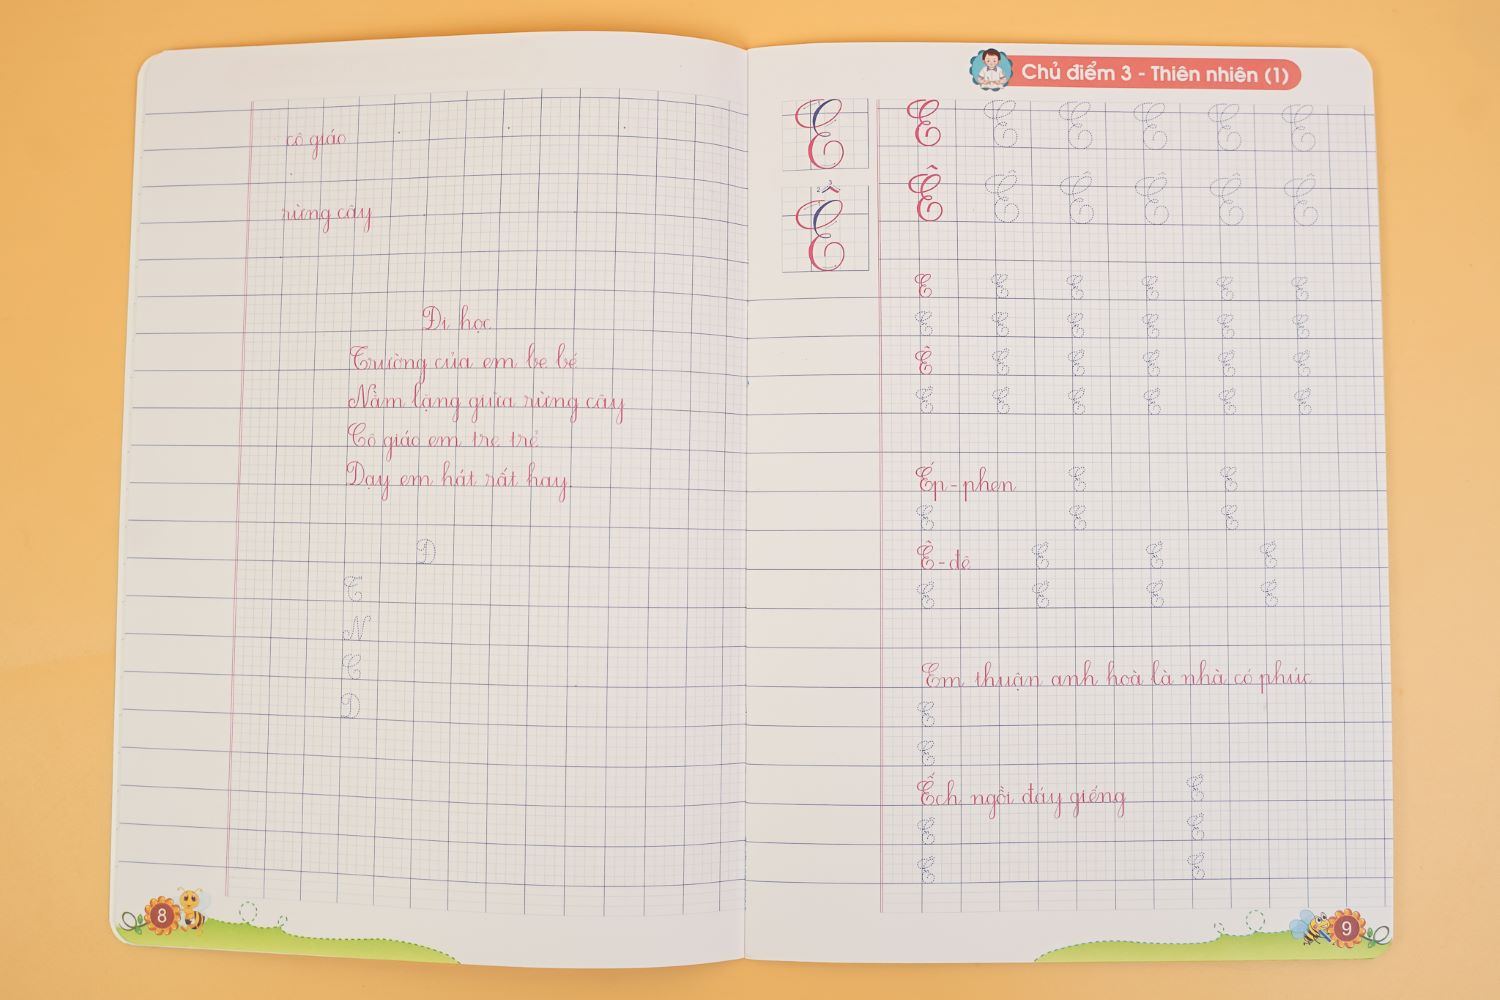 cô giáo
rừng cây
Đi học
Trường của em be bé
Nằm lặng giữa rừng cây
Cô giáo em tre trẻ
Dạy em hát rất hay.
Đ
T
N
C
D
8
Chủ điểm 3 - Thiên nhiên (1)
E E E E E E E
Ê Ê Ê Ê Ê Ê Ê
E E E E E E
E E E E E E
Ê Ê Ê Ê Ê Ê
Ê Ê Ê Ê Ê Ê
Ép-phen E E
E E E
Ê-đê Ê Ê Ê
Ê Ê Ê Ê
Em thuận anh hoà là nhà có phúc
E
E
Ếch ngồi đáy giếng Ê
Ê Ê
Ê Ê
9